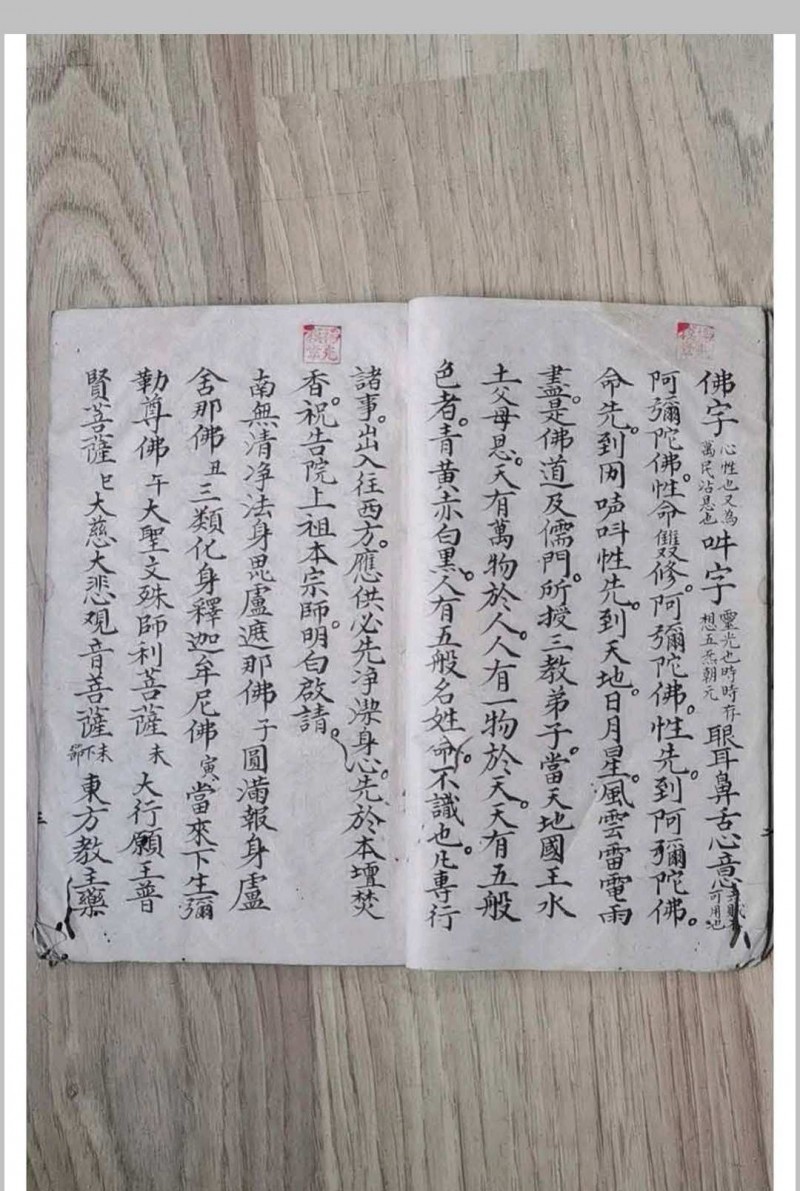 佛字 心性也又為萬民沾恩也 吽字 靈光也時時存想五炁朝元 眼耳鼻舌心意 可用也
阿彌陀佛。性命雙修。阿彌陀佛。性先到阿彌陀佛。
命先。到囙嗊吽性先。到天地。日月星。風雲雷電雨
盡是佛道及儒門。所授三教弟子。當天地國王水
土父母恩。天有萬物於人。人有一物於天。天有五般
色者。青黃赤白黑。人有五般名姓命。不識也。凡專行
諸事。出入往西方。應供必先净漱身心。先於本壇焚
香。祝告院上祖本宗師。明白啟請。
南無清净法身毘盧遮那佛 子 圓滿報身盧
舍那佛 丑 三類化身釋迦牟尼佛 寅 當來下生彌
勒尊佛 午 大聖文殊師利菩薩 未 大行願王普
賢菩薩 巳 大慈大悲观音菩薩 未 東方教主藥